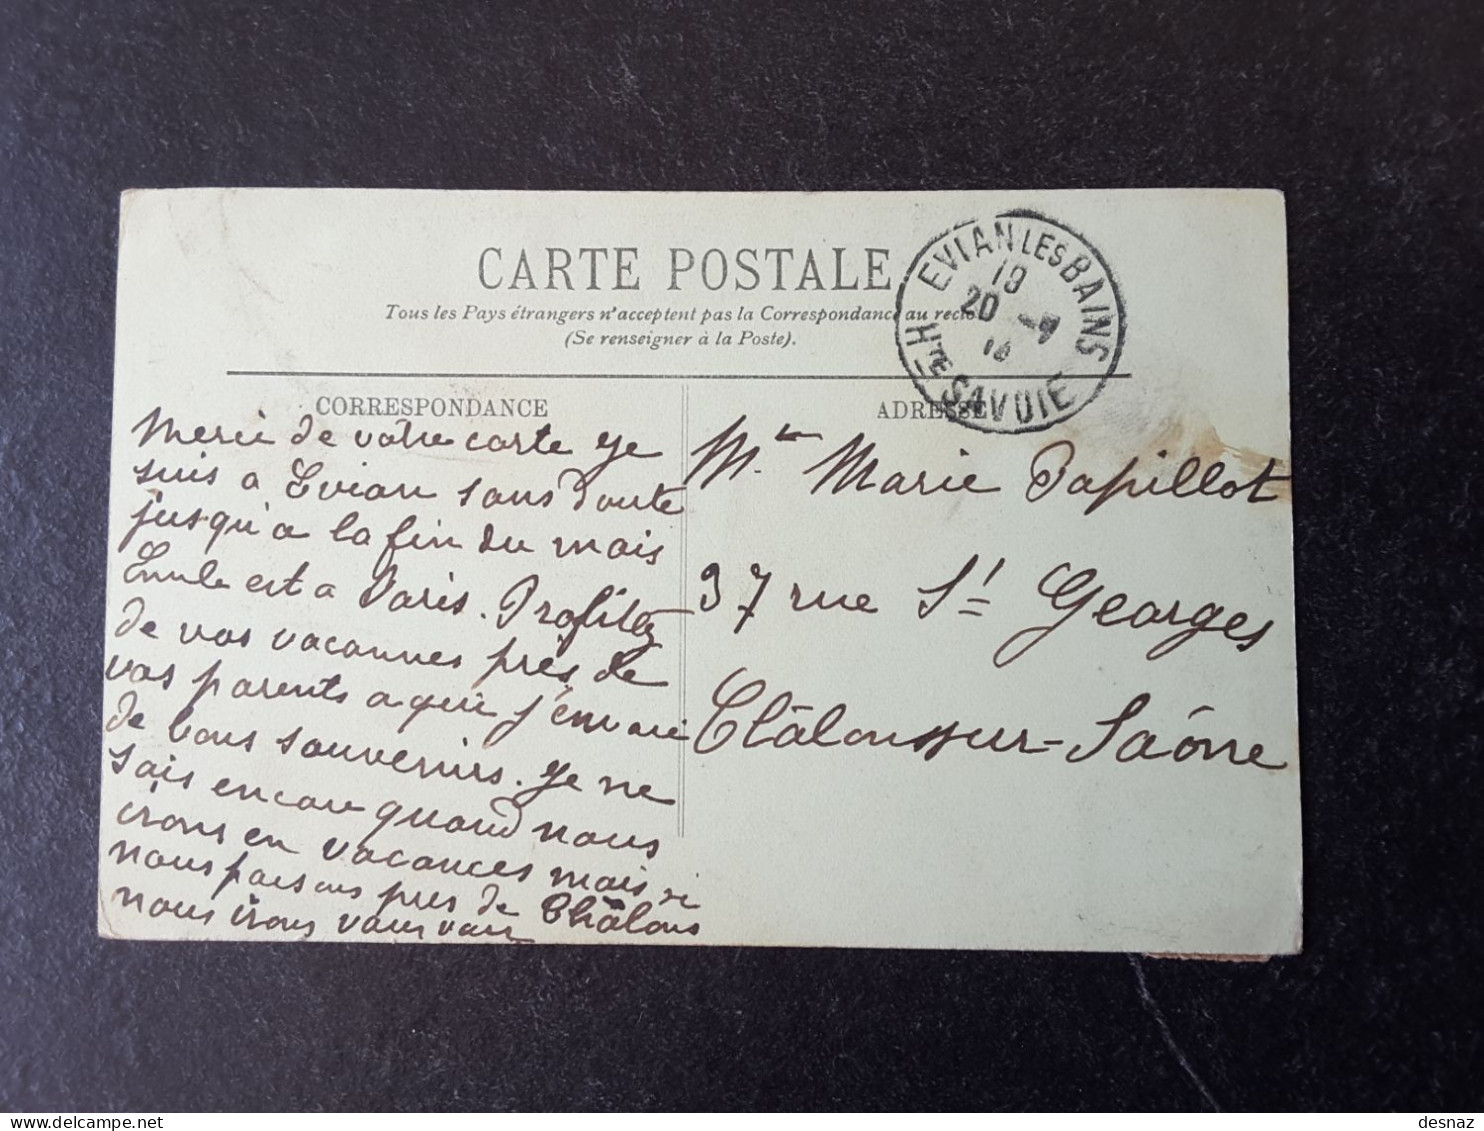 CARTE POSTALE
Tous les Pays étrangers n'acceptent pas la Correspondance au recto
(Se renseigner à la Poste).
EVIAN LES BAINS
19
20 -7
14
Hte SAVOIE
CORRESPONDANCE
Merci de votre carte je
suis a Evian sans doute
jusqu'a la fin du mois
Emile est a Paris. Profitez
de vos vacances près de
vos parents a qui j'envoie
de bons souvenirs. Je ne
sais encore quand nous
irons en vacances mais si
nous passons pres de Châlons
nous irons vous voir
ADRESSE
Mlle Marie Papillot
37 rue St Georges
Châlons sur-Saône
delcampe.net
desnaz